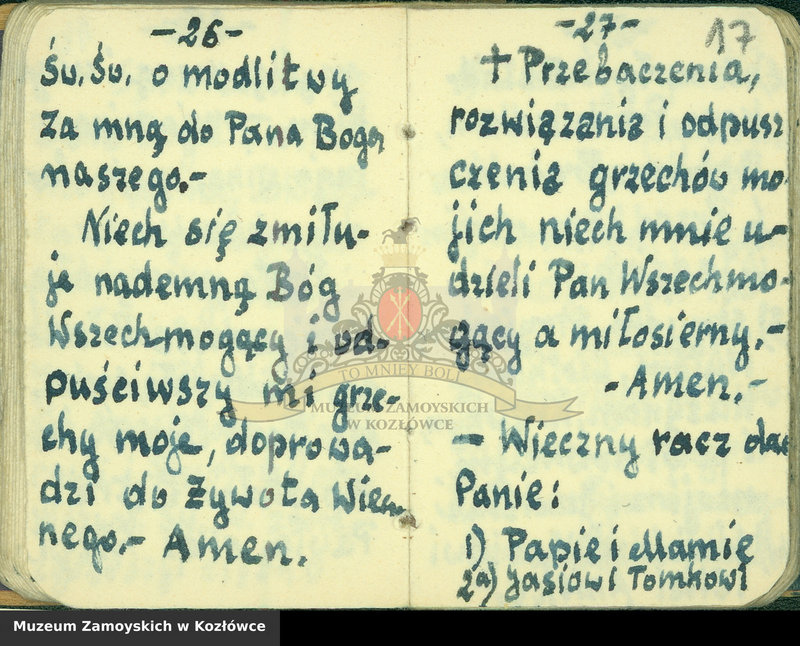 -26-
Św. Św. o modlitwy
za mną do Pana Boga
naszego.-
Niech się zmiłu-
je nademną Bóg
Wszechmogący i od-
puściwszy mi grze-
chy moje, doprowa-
dzi do żywota wiecz-
nego.- Amen.
-27-
17
† Przebaczenia,
rozwiązania i odpusz
czenia grzechów mo-
jich niech mnie u-
dzieli Pan Wszechmo-
gący a miłosierny.-
- Amen.-
- Wieczny racz dać
Panie:
1) Papie i Mamie
2a) Jasiowi Tomkowi
TO MNIEY BOLI
MUZEUM ZAMOYSKICH
W KOZŁÓWCE
Muzeum Zamoyskich w Kozłówce